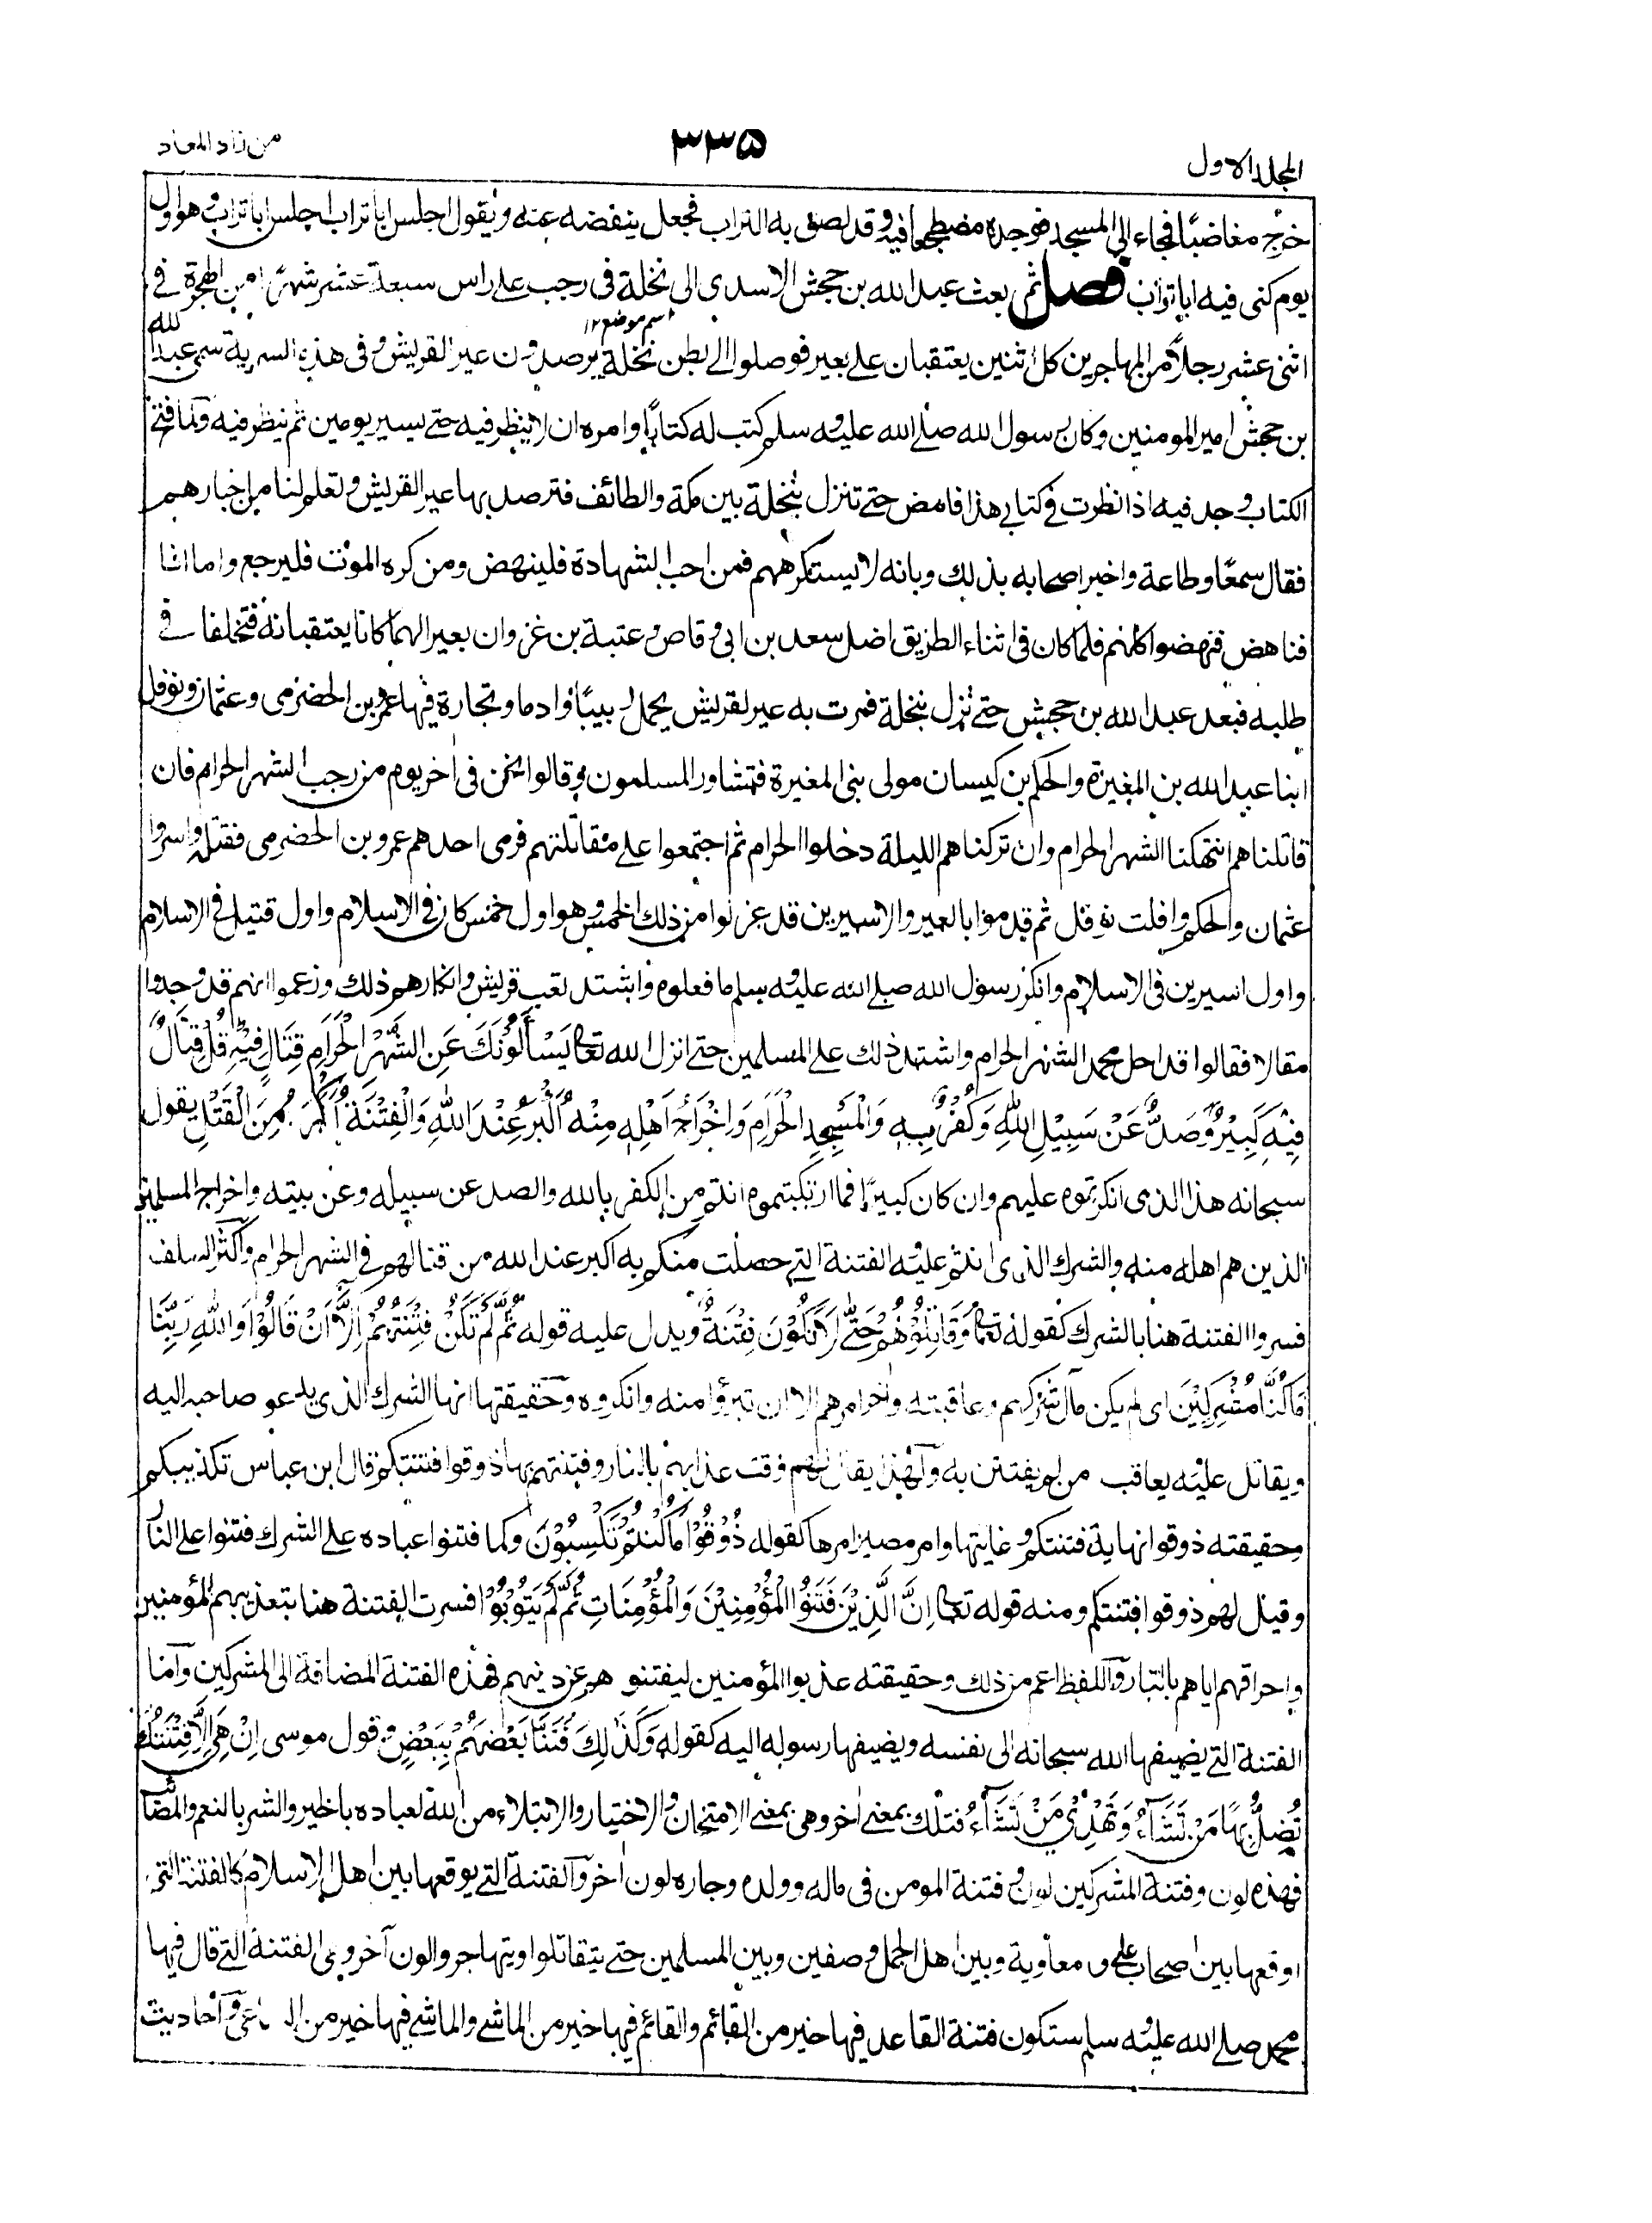 المجلد الاول
٣٣۵
من زاد المعاد
خرج مغاضبًا فجاء الى المسجد فوجده مضطجعا فيه وقد لصق به التراب فجعل ينفضه عنه ويقول اجلس ابا تراب اجلس ابا تراب وهو اول
يوم كنى فيه ابا تراب فصل ثم بعث عبد الله بن جحش الاسدى الى نخلة فى رجب على راس سبعة عشر شهرًا من الهجرة في
اسم موضع ١٢
اثنى عشر رجلًا من المهاجرين كل اثنين يعتقبان على بعير فوصلوا الى بطن نخلة يرصدون عير القريش وفى هذه السرية سمى عبد الله
بن جحش امير المومنين وكان رسول الله صلے الله عليه وسلم كتب له كتابًا وامره ان لا ينظر فيه حتے يسير يومين ثم ينظر فيه ولما فتح
الكتاب وجد فيه اذا نظرت في كتابي هذا فامض حتے تنزل بنخلة بين مكة والطائف فترصد بها عير القريش وتعلم لنا من اخبارهم
فقال سمعًا وطاعة واخبر اصحابه بذلك وبانه لا يستكرههم فمن احب الشهادة فلينهض ومن كره الموت فليرجع واما انا
فناهض فنهضوا كلهم فلما كان فى اثناء الطريق اضل سعد بن ابى وقاص وعتبة بن غزوان بعيرا لهما كانا يعتقبانه فتخلفا في
طلبه فبعد عبد الله بن جحش حتے نزل بنخلة فمرت به عير لقريش يحمل زبيبًا وادما وتجارة فيها عمرو بن الحضرمى وعثمان ونوفل
ابنا عبد الله بن المغيرة والحكم بن كيسان مولى بنى المغيرة فتشاور المسلمون وقالوا نحن فى اخر يوم من رجب الشهر الحرام فان
قاتلناهم انتهكنا الشهر الحرام وان تركناهم الليلة دخلوا الحرام ثم اجتمعوا على مقاتلتهم فرمى احدهم عمرو بن الحضرمى فقتله واسروا
عثمان والحكم وافلت نوفل ثم قدموا بالعير والاسيرين قد عزلوا من ذلك الخمس وهو اول خمس كان في الاسلام واول قتيل في الاسلام
واول اسيرين فى الاسلام وانكر رسول الله صلے الله عليه وسلم ما فعلوه واشتد تعب قريش وانكارهم ذلك وزعموا انهم قد وجدوا
مقالا فقالوا قد احل محمد الشهر الحرام واشتد ذلك على المسلمين حتے انزل الله تعالى يَسْأَلُوْنَكَ عَنِ الشَّهْرِ الْحَرَامِ قِتَالٍ فِيْهِ قُلْ قِتَالٌ
فِيْهِ كَبِيْرٌ وَّصَدٌّ عَنْ سَبِيْلِ اللّٰهِ وَكُفْرٌ بِهٖ وَالْمَسْجِدِ الْحَرَامِ وَاِخْرَاجُ اَهْلِهٖ مِنْهُ اَكْبَرُ عِنْدَ اللّٰهِ وَالْفِتْنَةُ اَكْبَرُ مِنَ الْقَتْلِ يقول
سبحانه هذا الذى انكرتموه عليهم وان كان كبيرًا فما ارتكبتموه انتم من الكفر بالله والصد عن سبيله وعن بيته واخراج المسلمين
الذين هم اهله منه والشرك الذى انتم عليه الفتنة التے حصلت منكم به اكبر عند الله من قتالهم في الشهر الحرام واكثر السلف
فسروا الفتنة هنا بالشرك كقوله تعالى وَقَاتِلُوْهُمْ حَتّٰى لَا تَكُوْنَ فِتْنَةٌ ويدل عليه قوله ثُمَّ لَمْ تَكُنْ فِتْنَتُهُمْ اِلَّا اَنْ قَالُوْا وَاللّٰهِ رَبِّنَا
مَا كُنَّا مُشْرِكِيْنَ اى لم يكن مآل شركهم وعاقبته واخر امرهم الا ان تبرؤا منه وانكروه وحقيقتها انها الشرك الذى يدعو صاحبه اليه
ويقاتل عليه يعاقب من لم يفتتن به ولهذا يقال لهم وقت عذابهم بالنار وفتنتهم بها ذوقوا فتنتكم قال ابن عباس تكذيبكم
وحقيقته ذوقوا نهاية فتنتكم وغايتها وامر مصير امرها كقوله ذُوْقُوْا مَا كُنْتُمْ تَكْسِبُوْنَ وكما فتنوا عباده على الشرك فتنوا على النار
وقيل لهم ذوقوا فتنتكم ومنه قوله تعالى اِنَّ الَّذِيْنَ فَتَنُوا الْمُؤْمِنِيْنَ وَالْمُؤْمِنَاتِ ثُمَّ لَمْ يَتُوْبُوْا فسرت الفتنة هنا بتعذيبهم المؤمنين
واحراقهم اياهم بالنار واللفظ اعم من ذلك وحقيقته عذبوا المؤمنين ليفتنوهم عن دينهم فهذه الفتنة المضافة الى المشركين واما
الفتنة التے يضيفها الله سبحانه الى نفسه ويضيفها رسوله اليه كقوله وَكَذٰلِكَ فَتَنَّا بَعْضَهُمْ بِبَعْضٍ وقول موسى اِنْ هِىَ اِلَّا فِتْنَتُكَ
تُضِلُّ بِهَا مَنْ تَشَآءُ وَتَهْدِىْ مَنْ تَشَآءُ فتلك بمعنى اخر وهى بمعنى الامتحان والاختيار والابتلاء من الله لعباده بالخير والشر بالنعم والمصائب
فهذه لون وفتنة المشركين لون وفتنة المومن فى ماله وولده وجاره لون اخر والفتنة التے يوقعها بين اهل الاسلام كالفتنة التے
اوقعها بين اصحاب على ومعاوية وبين اهل الجمل وصفين وبين المسلمين حتے يتقاتلوا ويتهاجروا لون آخر وهى الفتنة التے قال فيها
محمد صلے الله عليه وسلم ستكون فتنة القاعد فيها خير من القائم والقائم فيها خير من الماشے والماشے فيها خير من الساعى واحاديث